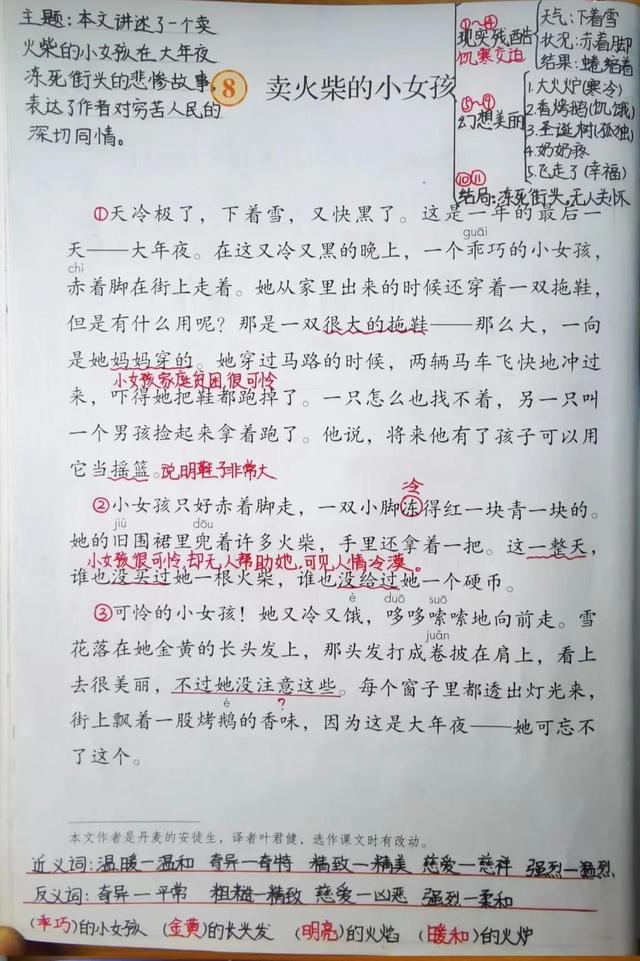 主题:本文讲述了一个卖
火柴的小女孩在大年夜
冻死街头的悲惨故事,
表达了作者对穷苦人民的
深切同情。
8 卖火柴的小女孩
①~④
现实残酷
饥寒交迫
天气:下着雪
状况:赤着脚
结果:蜷缩着
⑤~⑨
幻想美丽
1.大火炉(寒冷)
2.香烤鹅(饥饿)
3.圣诞树(孤独)
4.奶奶疼
5.飞走了(幸福)
⑩⑪
结局:冻死街头,无人关怀
①天冷极了，下着雪，又快黑了。这是一年的最后一
guāi
天——大年夜。在这又冷又黑的晚上，一个乖巧的小女孩，
chì
赤着脚在街上走着。她从家里出来的时候还穿着一双拖鞋，
但是有什么用呢？那是一双很大的拖鞋——那么大，一向
是她妈妈穿的。她穿过马路的时候，两辆马车飞快地冲过
小女孩家庭贫困,很可怜
来，吓得她把鞋都跑掉了。一只怎么也找不着，另一只叫
一个男孩捡起来拿着跑了。他说，将来他有了孩子可以用
它当摇篮。说明鞋子非常大
冷
②小女孩只好赤着脚走，一双小脚冻得红一块青一块的。
jiù dōu
她的旧围裙里兜着许多火柴，手里还拿着一把。这一整天，
小女孩很可怜,却无人帮助她,可见人情冷漠。
谁也没买过她一根火柴，谁也没给过她一个硬币。
è duō suō
③可怜的小女孩！她又冷又饿，哆哆嗦嗦地向前走。雪
juǎn
花落在她金黄的长头发上，那头发打成卷披在肩上，看上
去很美丽，不过她没注意这些。每个窗子里都透出灯光来，
é ?
街上飘着一股烤鹅的香味，因为这是大年夜——她可忘不
了这个。
本文作者是丹麦的安徒生，译者叶君健，选作课文时有改动。
近义词:温暖—温和 奇异—奇特 精致—精美 慈爱—慈祥 强烈—猛烈、
反义词:奇异—平常 粗糙—精致 慈爱—凶恶 强烈—柔和
(乖巧)的小女孩 (金黄)的长头发 (明亮)的火焰 (暖和)的火炉